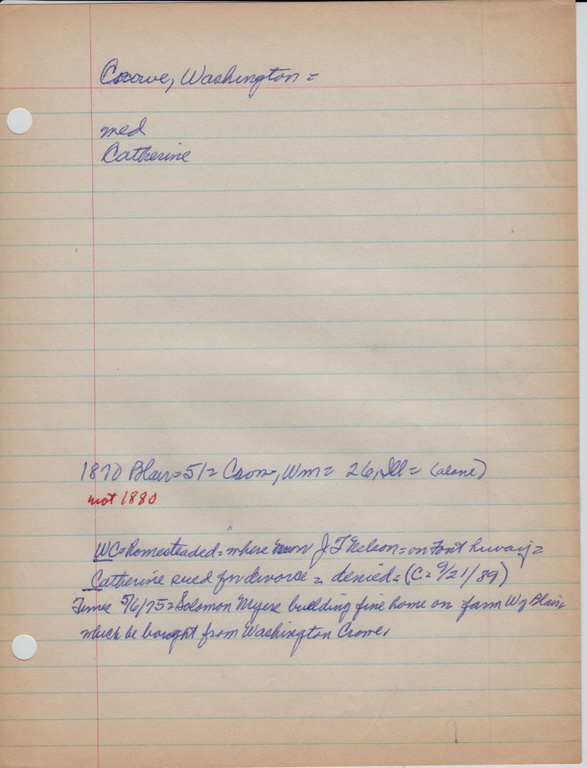 Crowe, Washington =
med
Catherine
1870 Blair = 51 = Crow, Wm = 26, Ill = (alone)
not 1880
WC = Homesteaded = where now J F Nelson = on Font =
Catherine sued for divorce = denied = (C = 9/21/89)
Times 5/6/75 = Solomon Myers building fine home on farm W of Blair,
which he bought from Washington Crowe,